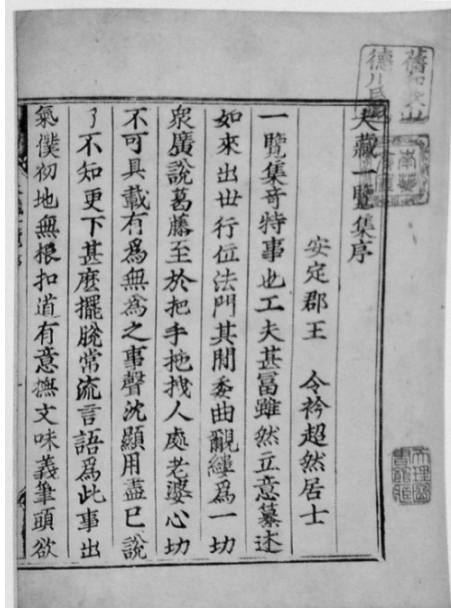 大藏一覽集序
安定郡王 令衿超然居士
一覽集奇特事也工夫甚冨雖然立意纂述
如來出世行位法門其閒委曲覼縷爲一切
衆廣說葛藤至於把手拖拽人處老婆心切
不可具載有爲無爲之事聲沈顯用盡已說
了不知更下甚麽擺脫常流言語爲此事出
氣僕初地無根扣道有意撫文味義筆頭欲